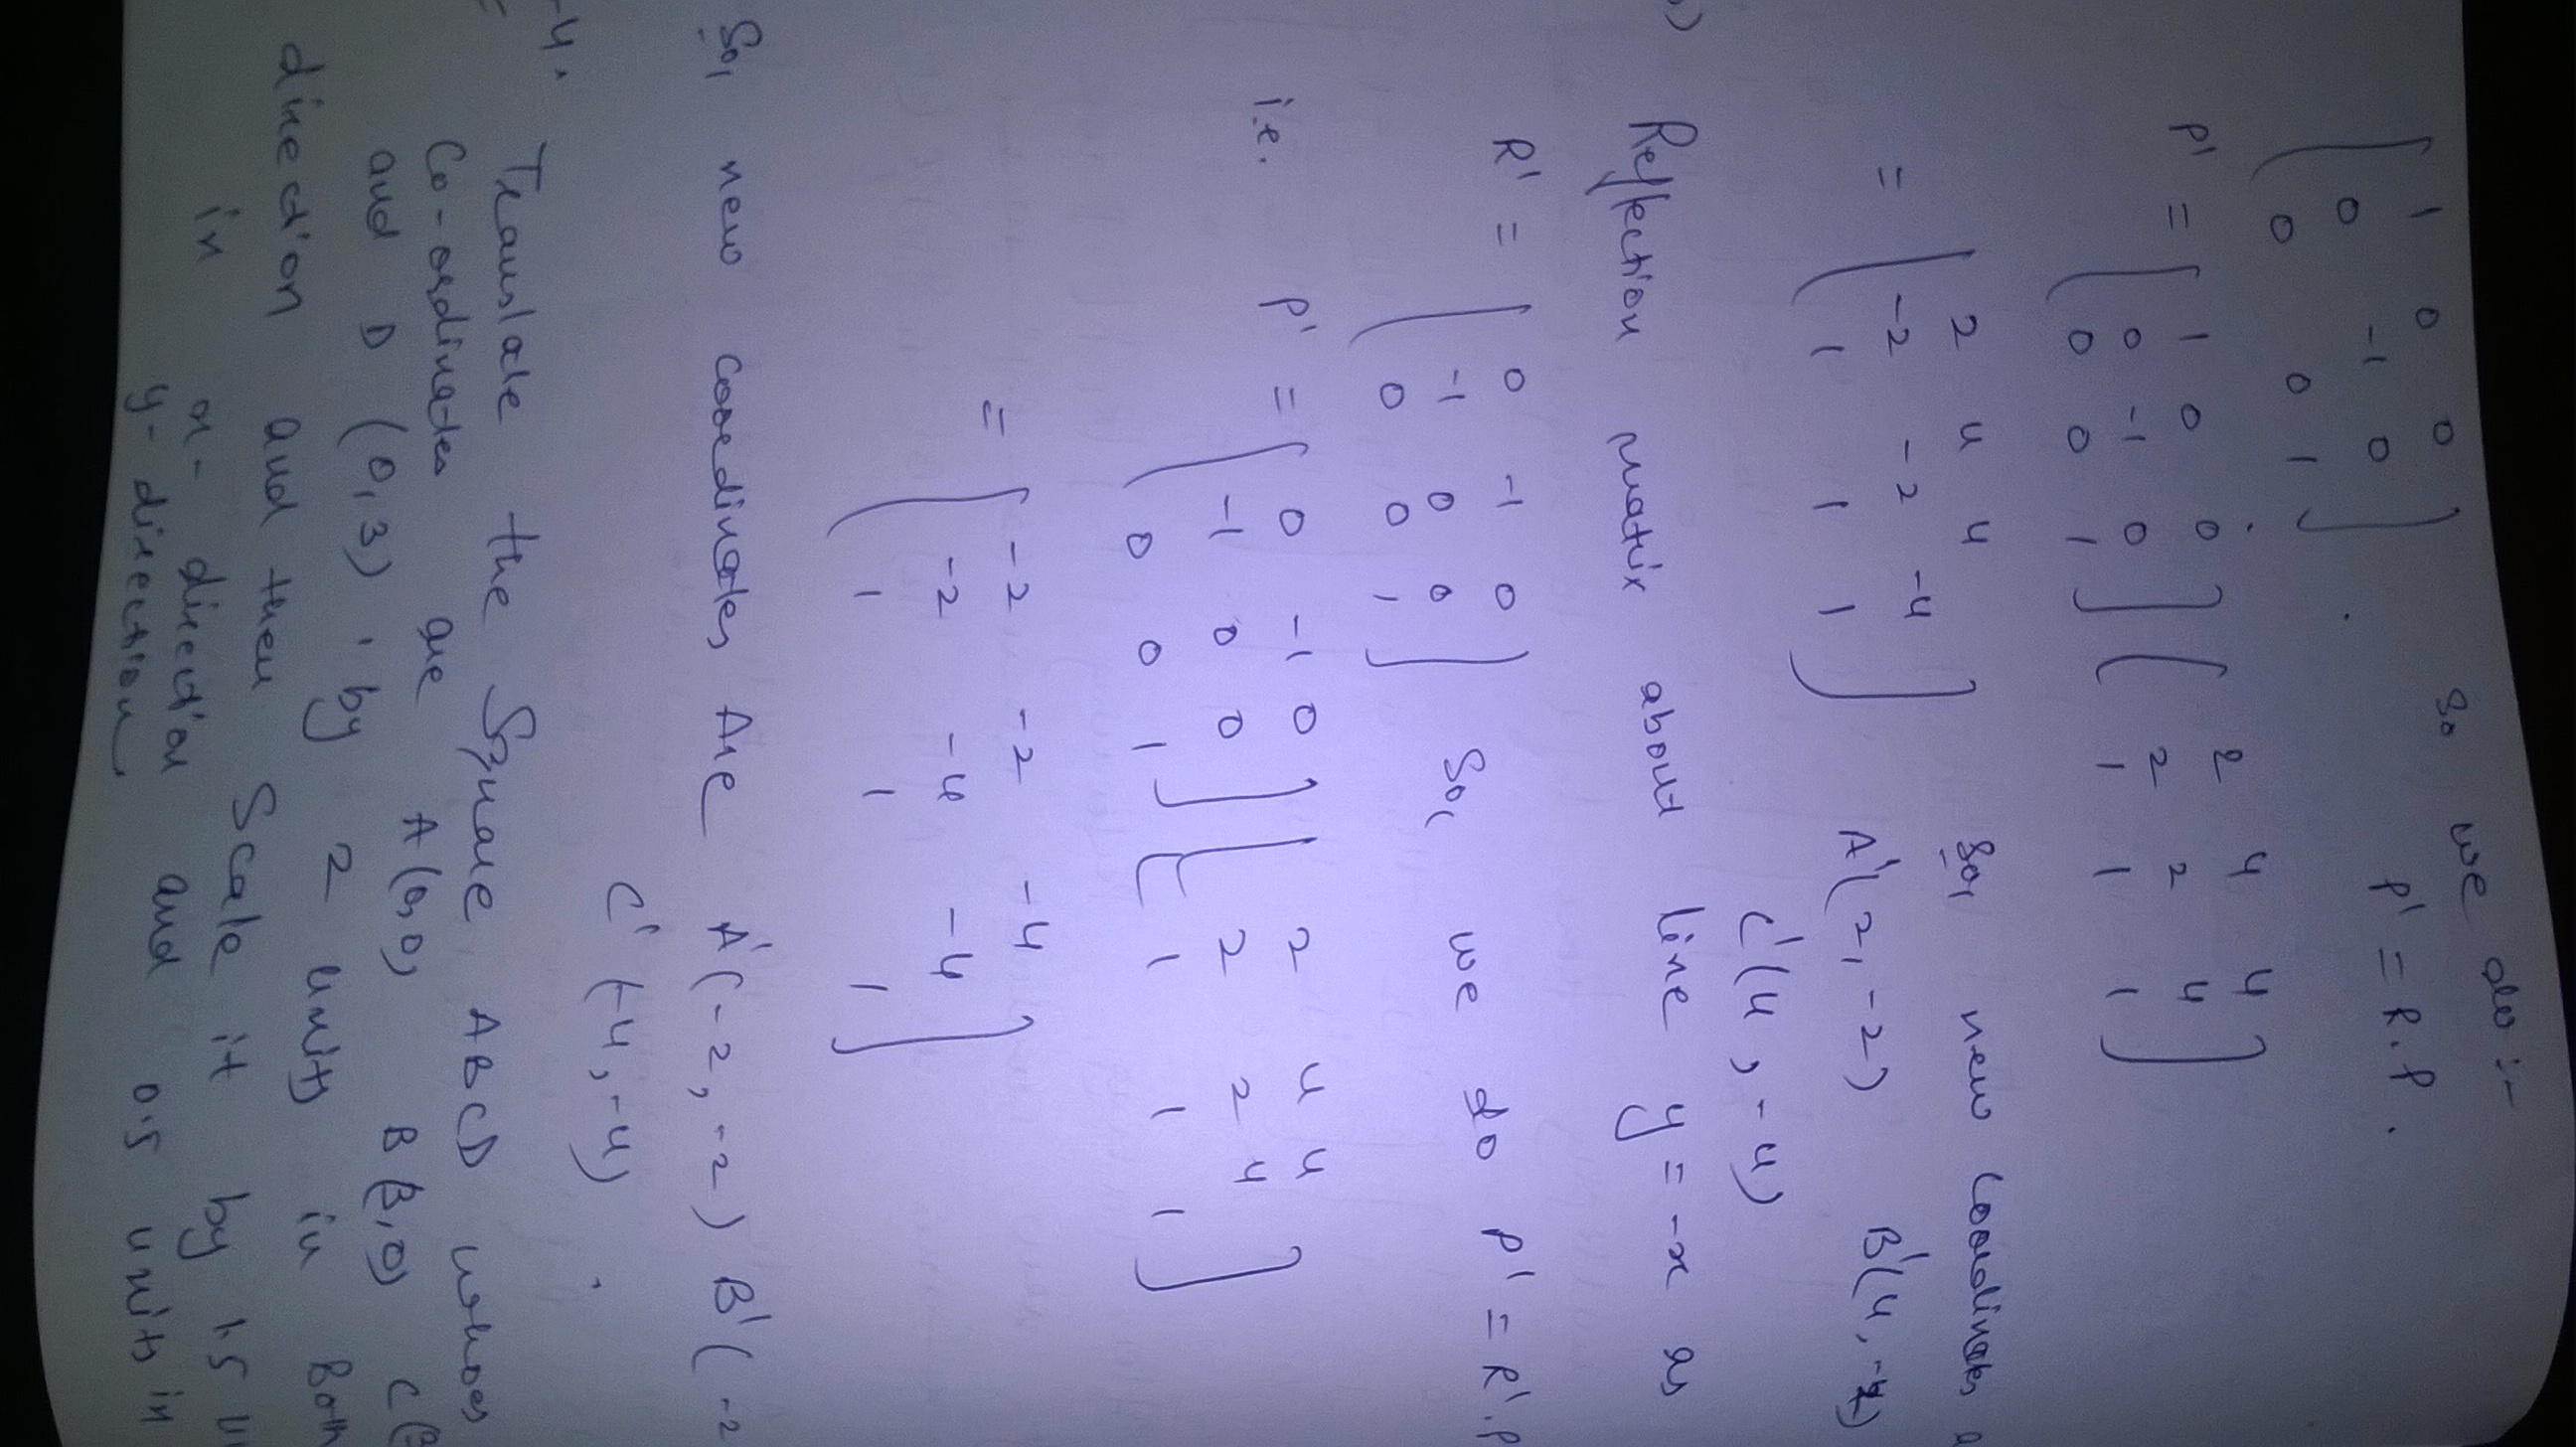 [ 1 0 0 So we do :-
0 -1 0 P' = R.P.
0 0 1 ]
P' = [ 1 0 0 ] [ 2 4 4 ]
0 -1 0 2 2 4
0 0 1 1 1 1
= [ 2 4 4 So, new coordinates
-2 -2 -4 A'(2,-2) B'(4,-2)
1 1 1 ] C'(4,-4)
) Reflection matrix about line y = -x as
R' = [ 0 -1 0 ] So, we do P' = R'.P
-1 0 0
0 0 1
i.e. P' = [ 0 -1 0 ] [ 2 4 4 ]
-1 0 0 2 2 4
0 0 1 1 1 1
= [ -2 -2 -4 ]
-2 -4 -4
1 1 1
So, new coordinates Are A'(-2,-2) B'(-2
C'(-4,-4)
4. Translate the Square ABCD whoes
Co-ordinates are A(0,0) B(3,0) C(3
and D (0,3), by 2 units in Both
direction and then Scale it by 1.5
in x- direction and 0.5 units in
y-direction